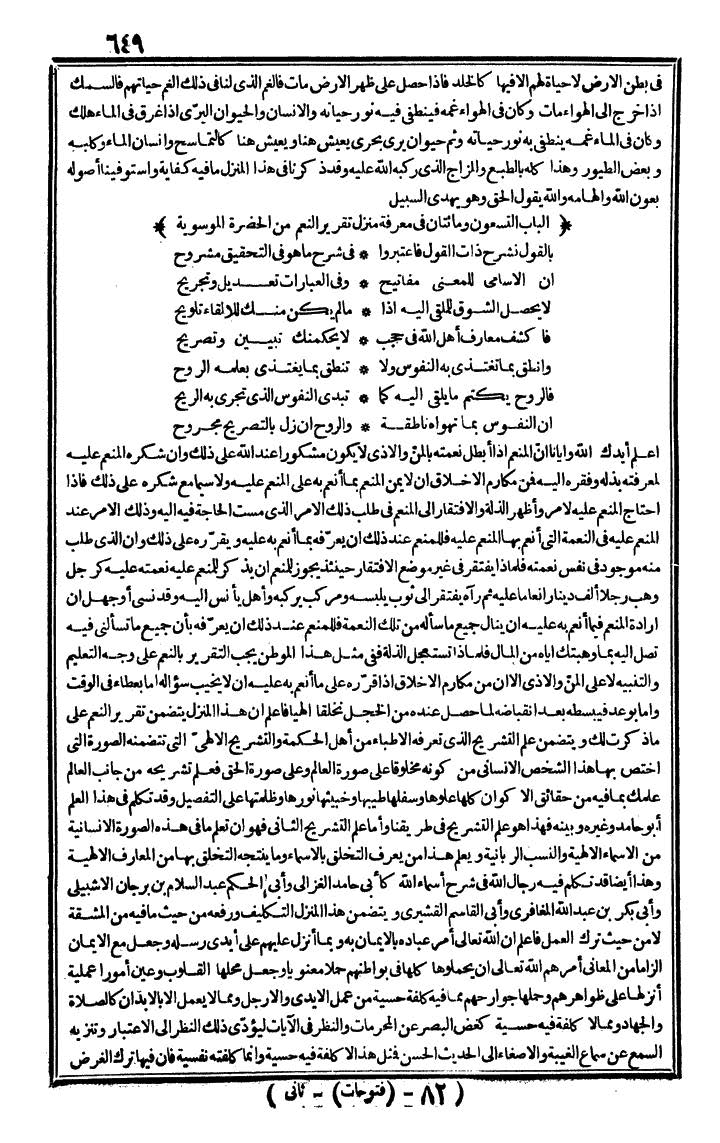 ٦٤٩
فى بطن الارض لاحياة لهم الافيها كالخلد فاذا حصل على ظهر الارض مات فالغم الذى لنا فى ذلك الغم حياتهم فالسمك
اذا خرج الى الهواء مات وكان فى الهواء غمه فينطفى فيه نور حياته والانسان والحيوان البرّى اذا غرق فى الماء هلك
وكان فى الماء غمه ينطفى به نور حياته وثم حيوان برى بحرى يعيش هنا ويعيش هنا كالتماسح وانسان الماء وكلبه
وبعض الطيور وهذا كله بالطبع والمزاج الذى ركبه الله عليه وقد ذكرنا فى هذا المنزل ما فيه كفاية واستوفينا أصوله
بعون الله والهامه والله يقول الحق وهو يهدى السبيل
﴿ الباب التسعون ومائتان فى معرفة منزل تقرير النعم من الحضرة الموسوية ﴾
بالقول نشرح ذات القول فاعتبروا * فى شرح ما هو فى التحقيق مشروح
ان الاسامى للمعنى مفاتيح * وفى العبارات تعديل وتجريح
لا يحصل الشوق للملقى اليه اذا * مالم يكن منك للالقاء تلويح
فاكشف معارف أهل الله فى حجب * لا يحكمنك تبيين وتصريح
وانطق بما تغتذى به النفوس ولا * تنطق بما يغتذى بعلمه الروح
فالروح يكتم ما يلقى اليه كما * تبدى النفوس الذى تجرى به الريح
ان النفوس بما تهواه ناطقة * والروح ان زل بالتصريح مجروح
اعلم أيدك الله وايانا انّ المنعم اذا أبطل نعمته بالمنّ والاذى لا يكون مشكورا عند الله على ذلك وان شكره المنعم عليه
لمعرفته بذله وفقره اليه فمن مكارم الاخلاق ان لا يمن المنعم بما أنعم به على المنعم عليه ولا سيما مع شكره على ذلك فاذا
احتاج المنعم عليه لامر وأظهر الذلة والافتقار الى المنعم فى طلب ذلك الامر الذى مست الحاجة فيه اليه وذلك الامر عند
المنعم عليه فى النعمة التى أنعم بها المنعم عليه فللمنعم عند ذلك ان يعرّفه بما أنعم به عليه ويقرّره على ذلك وان الذى طلب
منه موجود فى نفس نعمته فلماذا يفتقر فى غير موضع الافتقار حينئذ يجوز للمنعم ان يذكر للمنعم عليه نعمته عليه كرجل
وهب رجلا ألف دينار انعاما عليه ثم رآه يفتقر الى ثوب يلبسه ومركب يركبه وأهل يأنس اليه وقد نسى أو جهل ان
ارادة المنعم فيما أنعم به عليه ان ينال جميع ما سأله من تلك النعمة فللمنعم عند ذلك ان يعرّفه بأن جميع ما تسألنى فيه
تصل اليه بما وهبتك اياه من المال فلماذا تستعجل الذلة ففى مثل هذا الموطن يجب التقرير بالنعم على وجه التعليم
والتنبيه لا على المنّ والاذى الا ان من مكارم الاخلاق اذا قرّره على ما أنعم به عليه ان لا يخيب سؤاله اما بعطاء فى الوقت
واما بوعد فيبسطه بعد انقباضه لما حصل عنده من الخجل تخلقا الهيا فاعلم ان هذا المنزل يتضمن تقرير النعم على
ما ذكرت لك ويتضمن علم التشريح الذى تعرفه الاطباء من أهل الحكمة والتشريح الالهىّ التى تتضمنه الصورة التى
اختص بها هذا الشخص الانسانى من كونه مخلوقا على صورة العالم وعلى صورة الحق فعلم تشريحه من جانب العالم
علمك بما فيه من حقائق الاكوان كلها علوها وسفلها طيبها وخبيثها نورها وظلمتها على التفصيل وقد تكلم فى هذا العلم
أبو حامد وغيره وبينه فهذا هو علم التشريح فى طريقنا وأما علم التشريح الثانى فهو ان تعلم ما فى هذه الصورة الانسانية
من الاسماء الالهية والنسب الربانية ويعلم هذا من يعرف التخلق بالاسماء وما ينتجه التخلق بها من المعارف الالهية
وهذا أيضا قد تكلم فيه رجال الله فى شرح أسماء الله كأبى حامد الغزالى وأبى الحكم عبد السلام بن برجان الاشبيلى
وأبى بكر بن عبد الله المغافرى وأبى القاسم القشيرى ويتضمن هذا المنزل التكليف ورفعه من حيث ما فيه من المشقة
لا من حيث ترك العمل فاعلم ان الله تعالى أمر عباده بالايمان به وبما أنزل عليهم على أيدى رسله وجعل مع الايمان
الزاما من المعانى أمرهم الله تعالى ان يحملوها كلها فى بواطنهم حملا معنويا وجعل محلها القلوب وعين أمورا عملية
أنزلها على ظواهرهم وحملها جوارحهم بما فيه كلفة حسية من عمل الايدى والارجل ومما لا يعمل الا بالابدان كالصلاة
والجهاد ومما لا كلفة فيه حسية كغض البصر عن المحرمات والنظر فى الآيات ليؤدّى ذلك النظر الى الاعتبار وتنزيه
السمع عن سماع الغيبة والاصغاء الى الحديث الحسن فمثل هذا لا كلفة فيه حسية وانما كلفته نفسية فان فيها ترك الغرض
( ٨٢ - (فتوحات) - ثانى )